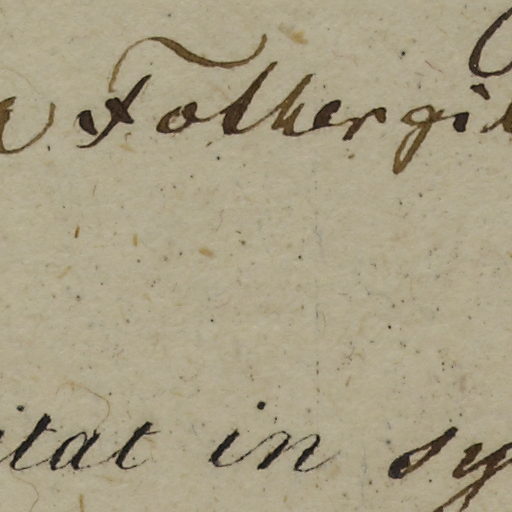 Fothergil
itat in sy